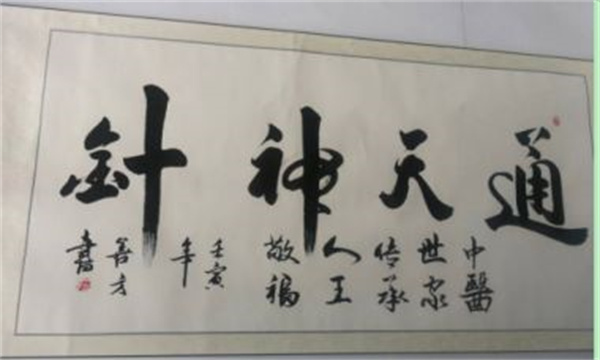 通天神針
中醫
世家
传承
人王
敬福
壬寅
年
善方
書